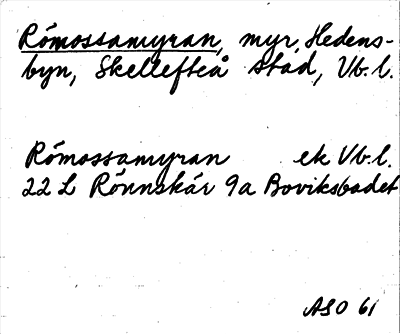 Römossamyran, myr, Hedens-
byn, Skellefteå stad, Vb. l.
Römossamyran ek Vb. l.
22 L Rönnskär 9a Boviksbadet
ASO 61